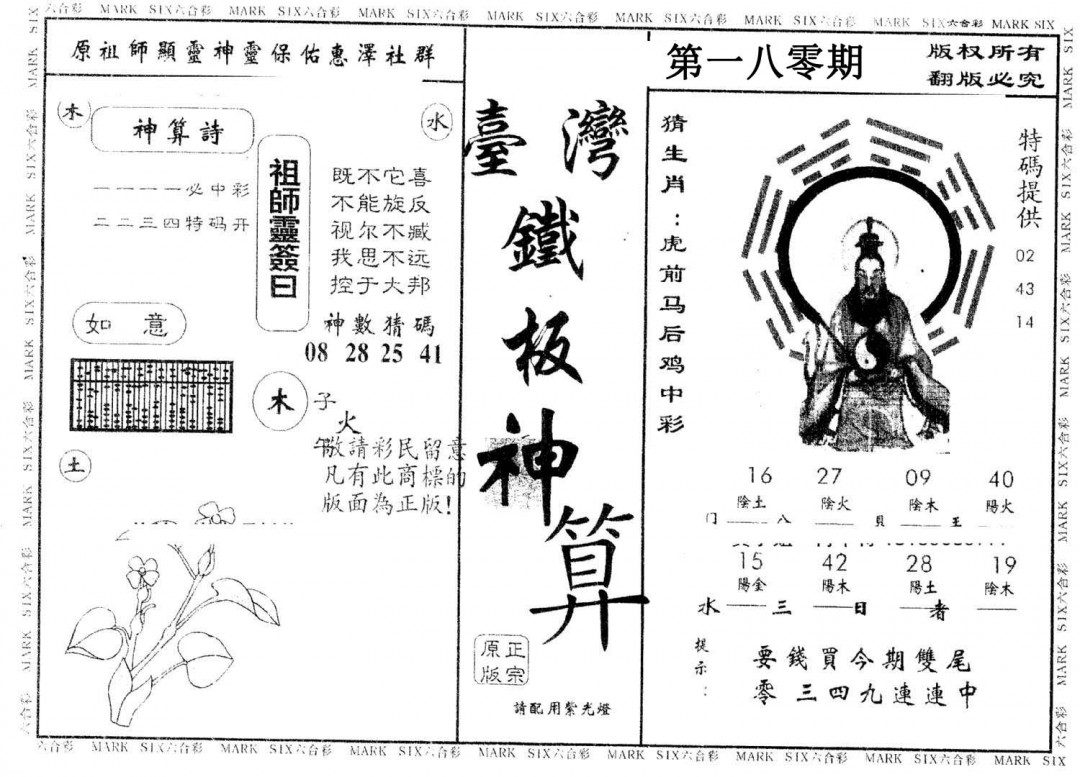 六合彩 MARK SIX六合彩 MARK SIX六合彩 MARK SIX六合彩 MARK SIX六合彩 MARK SIX六合彩 MARK SIX六合彩 MARK SIX六合彩 MARK SIX
原祖師顯靈神靈保佑惠澤社群
木
神算詩
水
一一一一必中彩
二二三四特码开
祖師靈簽曰
既不它喜
不能旋反
视尔不臧
我思不远
控于大邦
神數猜碼
08 28 25 41
如意
木
子
火
午
敬請彩民留意
凡有此商標的
版面為正版!
土
臺灣
鐵
板
神
算
原正
版宗
請配用紫光燈
第一八零期
版权所有
翻版必究
猜生肖:虎前马后鸡中彩
特碼提供
02
43
14
16 27 09 40
陰土 陰火 陰木 陽火
门 八 貝 王
15 42 28 19
陽金 陽木 陽土 陰木
水 三 日 者
提示:
要錢買今期雙尾
零三四九連連中
六合彩 MARK SIX六合彩 MARK SIX六合彩 MARK SIX六合彩 MARK SIX六合彩 MARK SIX六合彩 MARK SIX六合彩 MARK SIX六合彩 MARK SIX